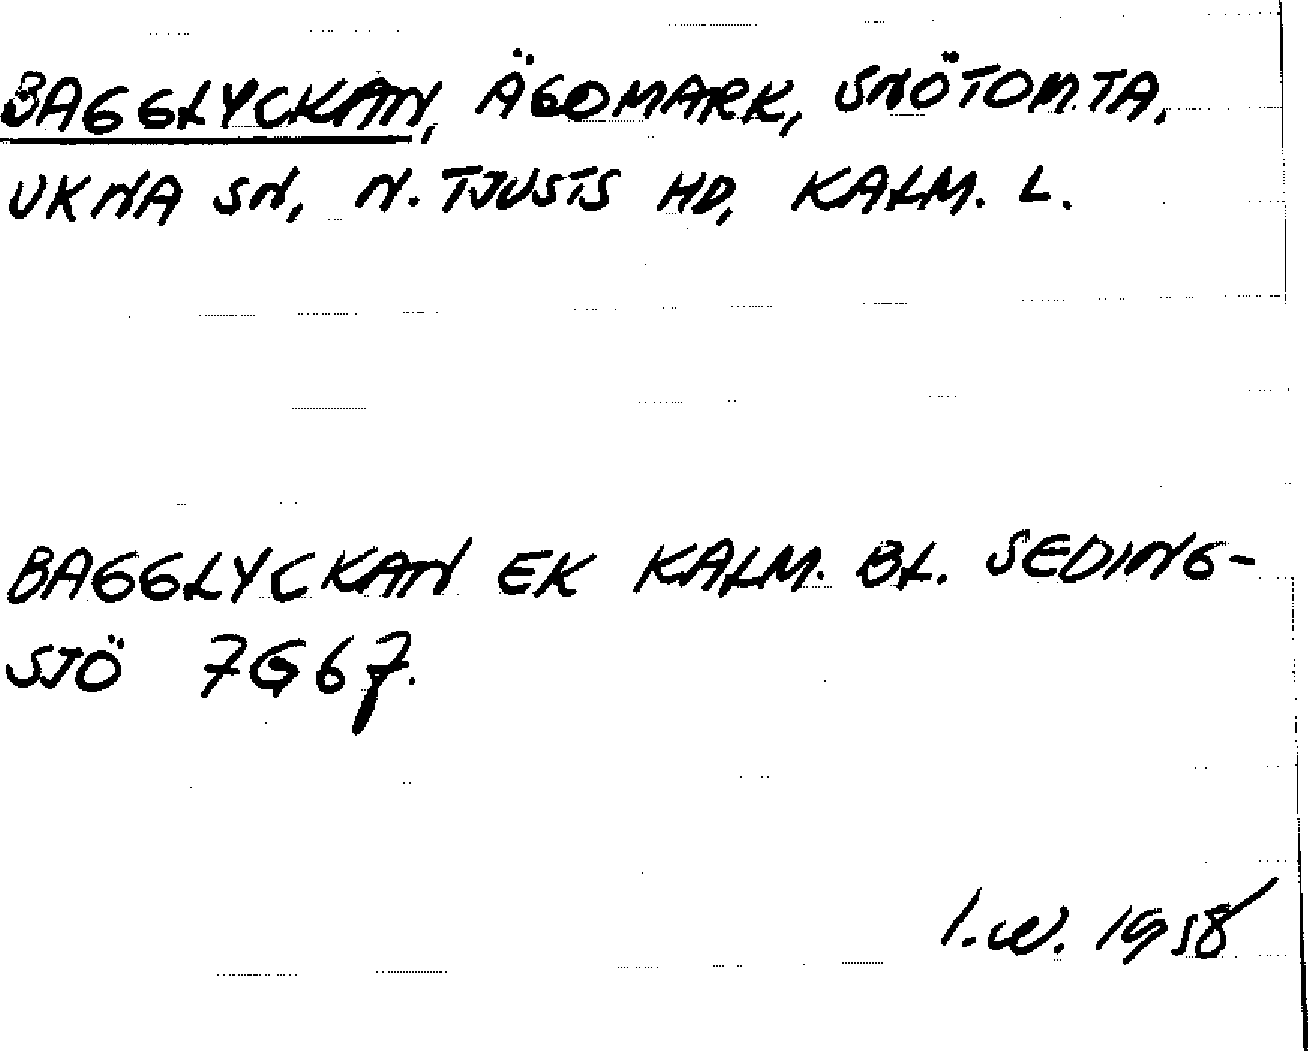 BAGGLYCKAN, ÄGOMARK, SNÖTOMTA,
UKNA SN, N. TJUSTS HD, KALM. L.
BAGGLYCKAN EK KALM. BL. SEDING-
SJÖ 7G67.
I.W. 1958